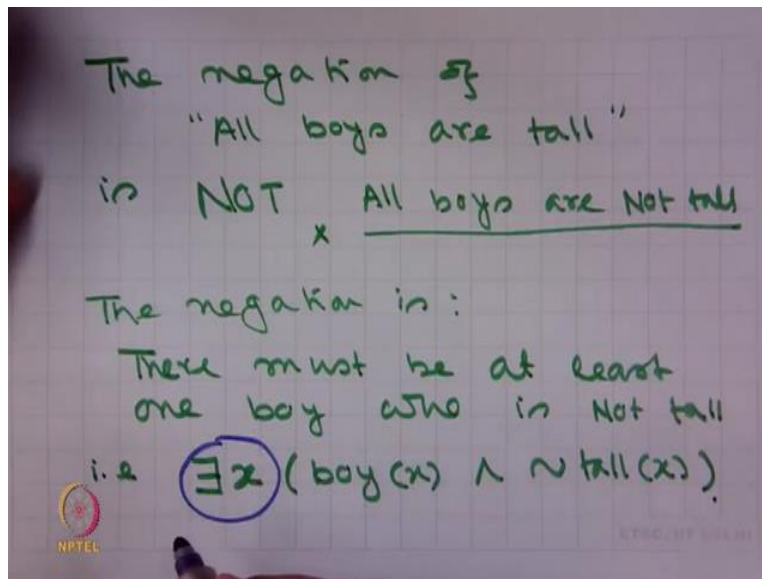 The negation of
"All boys are tall"
is NOT All boys are Not tall
x
The negation is:
There must be at least
one boy who is Not tall
i.e ∃x (boy(x) ∧ ~ tall(x)).
NPTEL